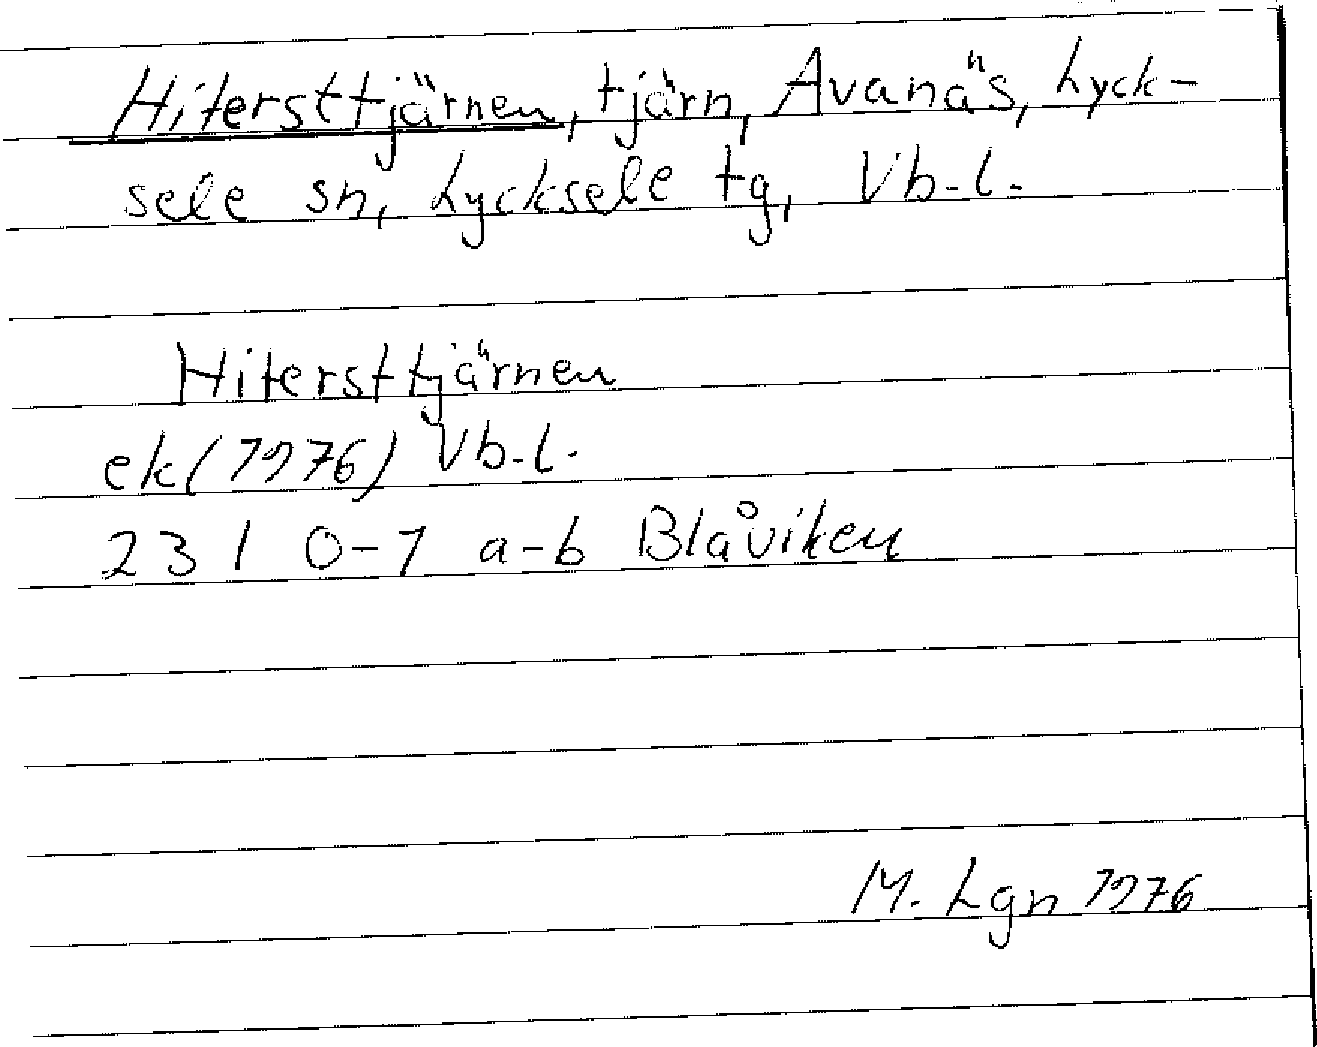 Hitersttjärnen, tjärn, Avanäs, Lyck-
sele sn, Lycksele tg, Vb-l.
Hitersttjärnen
ek(1976) Vb-l.
23 I 0-1 a-b Blåviken
M. Lgn 1976